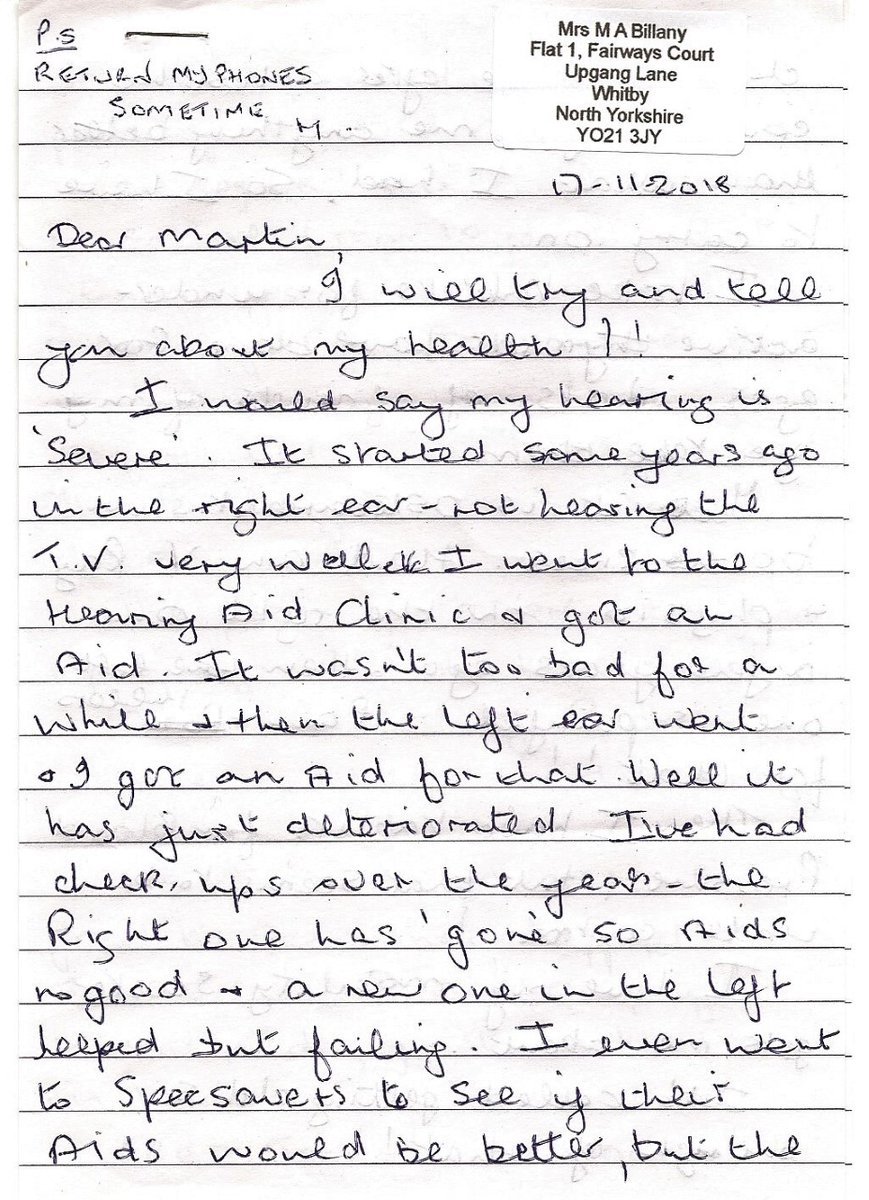 P.S
RETURN MY PHONES
SOMETIME.
M.
Mrs M A Billany
Flat 1, Fairways Court
Upgang Lane
Whitby
North Yorkshire
YO21 3JY
17-11-2018
Dear Martin,
I will try and tell
you about my health !!
I would say my hearing is
'Severe'. It started some years ago
in the right ear - not hearing the
T.V. very well & I went to the
Hearing Aid Clinic & got an
Aid. It wasn't too bad for a
while & then the left ear went
& I got an Aid for that. Well it
has just deteriorated I've had
check, ups over the years - the
Right one has 'gone' so Aids
no good & a new one in the left
helped but failing. I even went
to Specsavers to see if their
Aids would be better, but the